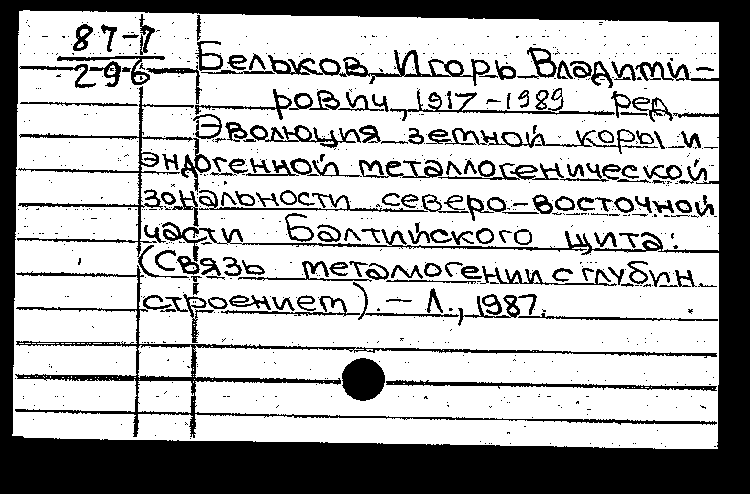 87-7
296
Бельков, Игорь Владими-
рович, 1917-1989 ред
Эволюция земной коры и
эндогенной металлогенической
зональности северо-восточной
части Балтийского щита:
(Связь металлогении с глубин.
строением). — Л., 1987.